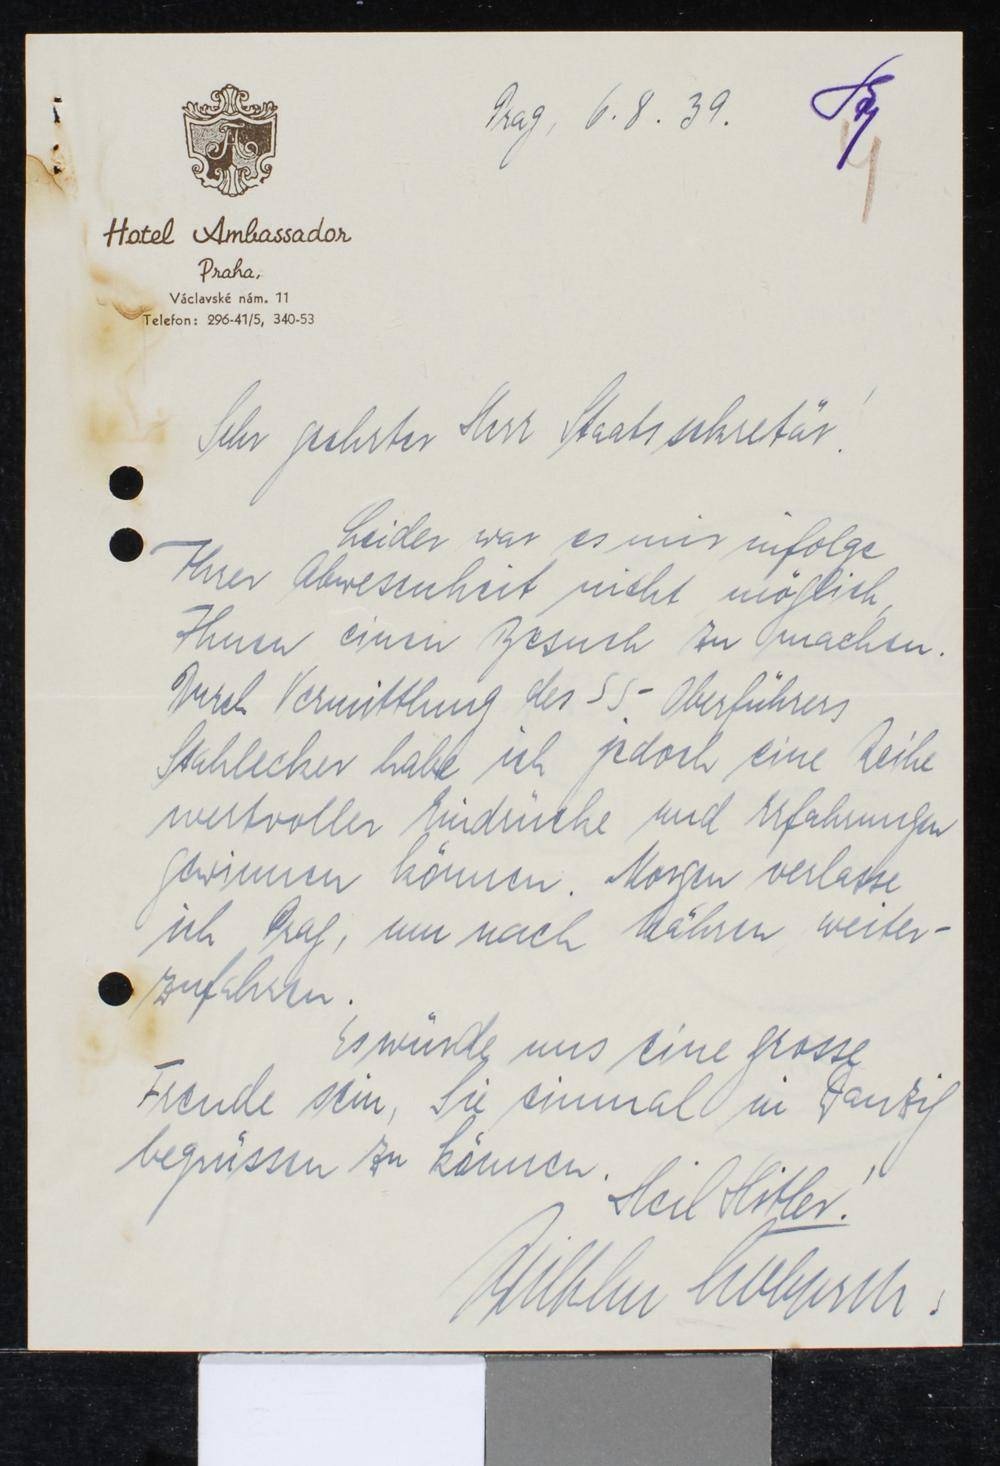 Prag, 6.8.39.
Hotel Ambassador
Praha,
Václavské nám. 11
Telefon: 296-41/5, 340-53
Sehr geehrter Herr Staatssekretär!
Leider war es mir infolge
Ihrer Abwesenheit nicht möglich,
Ihnen einen Besuch zu machen.
Durch Vermittlung des SS-Oberführers
Stahlecker habe ich jedoch eine Reihe
wertvoller Eindrücke und Erfahrungen
gewinnen können. Morgen verlasse
ich Prag, um nach Mähren weiter-
zufahren.
Es würde uns eine grosse
Freude sein, Sie einmal in Danzig
begrüssen zu können.
Heil Hitler!